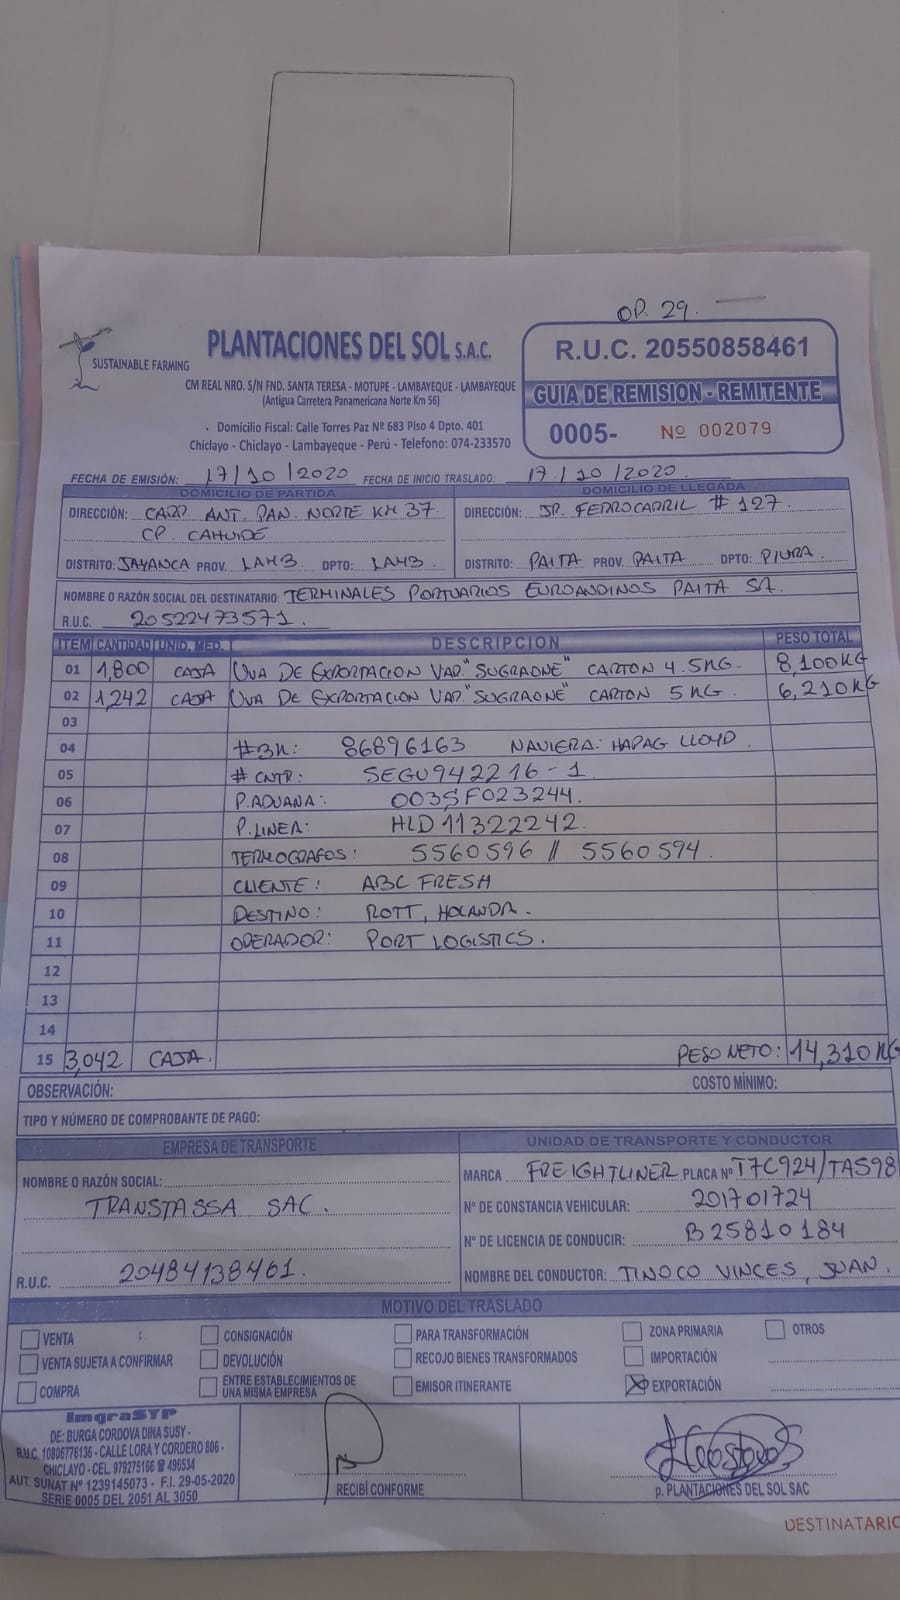 OP. 29.
SUSTAINABLE FARMING
PLANTACIONES DEL SOL S.A.C.
CM REAL NRO. S/N FND. SANTA TERESA - MOTUPE - LAMBAYEQUE - LAMBAYEQUE
(Antigua Carretera Panamericana Norte Km 56)
Domicilio Fiscal: Calle Torres Paz Nº 683 Piso 4 Dpto. 401
Chiclayo - Chiclayo - Lambayeque - Perú - Telefono: 074-233570
R.U.C. 20550858461
GUIA DE REMISION - REMITENTE
0005- Nº 002079
FECHA DE EMISIÓN: 17/10/2020 FECHA DE INICIO TRASLADO: 17/10/2020
DOMICILIO DE PARTIDA
DIRECCIÓN: CARR. ANT. PAN. NORTE KM 37
CP. CAHUIDE
DISTRITO: JAYANCA PROV. LAMB DPTO: LAMB.
DOMICILIO DE LLEGADA
DIRECCIÓN: JR. FERROCARRIL # 127.
DISTRITO: PAITA PROV. PAITA DPTO: PIURA.
NOMBRE O RAZÓN SOCIAL DEL DESTINATARIO: TERMINALES PORTUARIOS EUROANDINOS PAITA SA.
R.U.C. 20522473571.
ITEM CANTIDAD UNID. MED. DESCRIPCION PESO TOTAL
01 1,800 CAJA UVA DE EXPORTACION VAR. "SUGRAONE" CARTON 4.5KG. 8,100KG
02 1,242 CAJA UVA DE EXPORTACION VAR. "SUGRAONE" CARTON 5KG. 6,210KG
03
04 #BK: 86896163 NAVIERA: HAPAG LLOYD.
05 # CNTR: SEGU942216-1
06 P.ADUANA: 003SF023244.
07 P.LINEA: HLD11322242.
08 TERMOGRAFOS: 5560596 // 5560594.
09 CLIENTE: ABC FRESH
10 DESTINO: ROTT, HOLANDA.
11 OPERADOR: PORT LOGISTICS.
12
13
14
15 3,042 CAJA. PESO NETO: 14,310KG
OBSERVACIÓN: COSTO MÍNIMO:
TIPO Y NÚMERO DE COMPROBANTE DE PAGO:
EMPRESA DE TRANSPORTE
NOMBRE O RAZÓN SOCIAL:
TRANSTASSA SAC.
R.U.C. 20484138461.
UNIDAD DE TRANSPORTE Y CONDUCTOR
MARCA FREIGHTLINER PLACA Nº T7C924/TAS98
Nº DE CONSTANCIA VEHICULAR: 201701724
Nº DE LICENCIA DE CONDUCIR: B25810184
NOMBRE DEL CONDUCTOR: TINOCO VINCES, JUAN.
MOTIVO DEL TRASLADO
VENTA CONSIGNACIÓN PARA TRANSFORMACIÓN ZONA PRIMARIA OTROS
VENTA SUJETA A CONFIRMAR DEVOLUCIÓN RECOJO BIENES TRANSFORMADOS IMPORTACIÓN
COMPRA ENTRE ESTABLECIMIENTOS DE UNA MISMA EMPRESA EMISOR ITINERANTE EXPORTACIÓN
ImgraSYP
DE: BURGA CORDOVA DINA SUSY -
R.U.C. 10806776136 - CALLE LORA Y CORDERO 806 -
CHICLAYO - CEL. 979275166 ☎ 496534
AUT. SUNAT Nº 1239145073 - F.I. 29-05-2020
SERIE 0005 DEL 2051 AL 3050
RECIBÍ CONFORME
p. PLANTACIONES DEL SOL SAC
DESTINATARIO